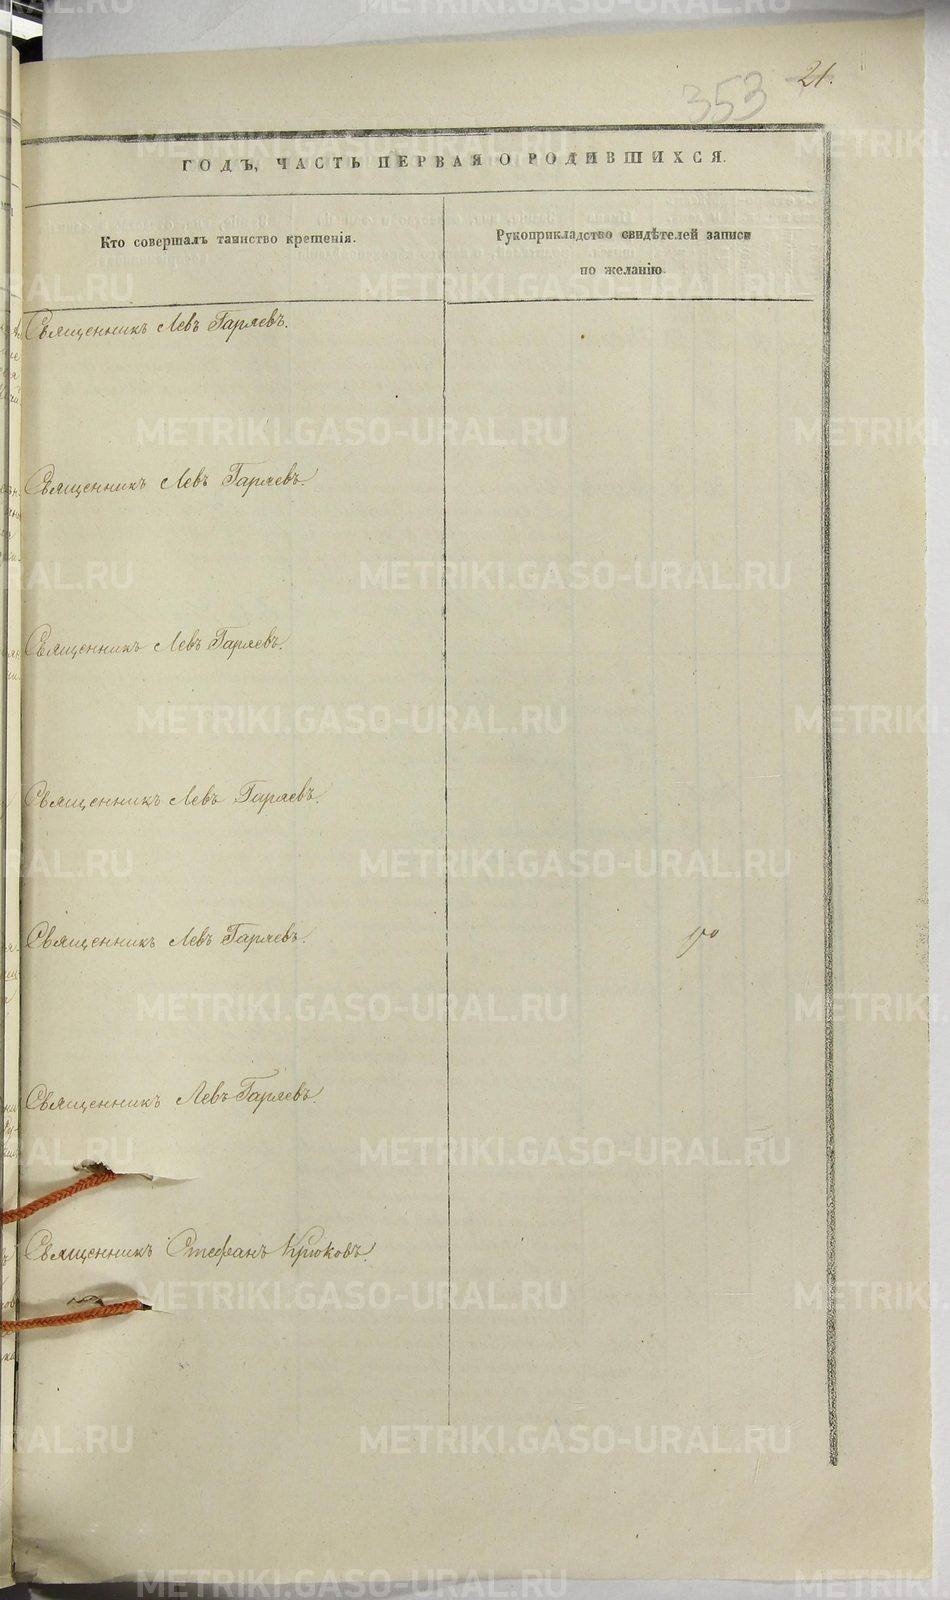 353 21.
ГОДЪ, ЧАСТЬ ПЕРВАЯ О РОДИВШИХСЯ.
Кто совершалъ таинство крещенія.
Рукоприкладство свидѣтелей записи
по желанію.
Священникъ Левъ Гаряевъ.
Священникъ Левъ Гаряевъ.
Священникъ Левъ Гаряевъ.
Священникъ Левъ Гаряевъ.
Священникъ Левъ Гаряевъ.
Священникъ Левъ Гаряевъ.
Священникъ Стефанъ Крюковъ.
METRIKI.GASO-URAL.RU